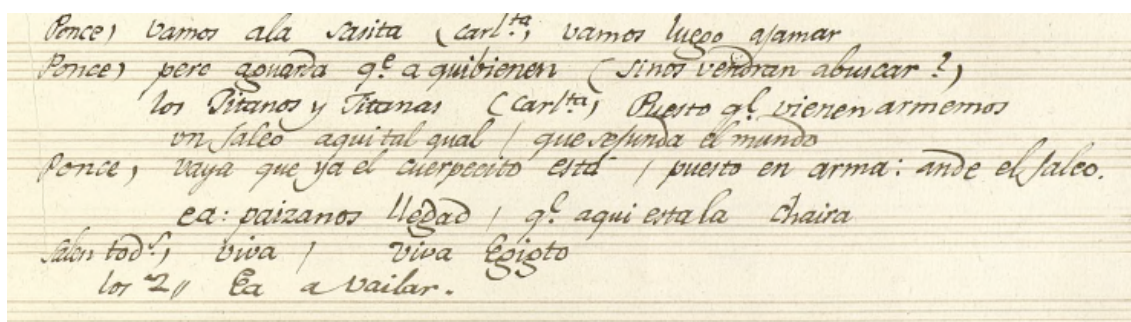 Ponce) vamos ala Jasita (Carl.ta) vamos luego ajamar
Ponce) pero aguarda q.e a quibienen (sinos vendran abuscar?)
los Jitanos y Jitanas (Carl.ta) Puesto q.e vienen armemos
vn Jaleo aquital qual / que sejunda el mundo
Ponce) vaya que ya el cuerpecito está / puesto en arma: ande el Jaleo.
ea: paizanos llegad / q.e aqui esta la Chaira
Salen tod.s) viva / viva Egigto
los 2 // Ea a vailar.